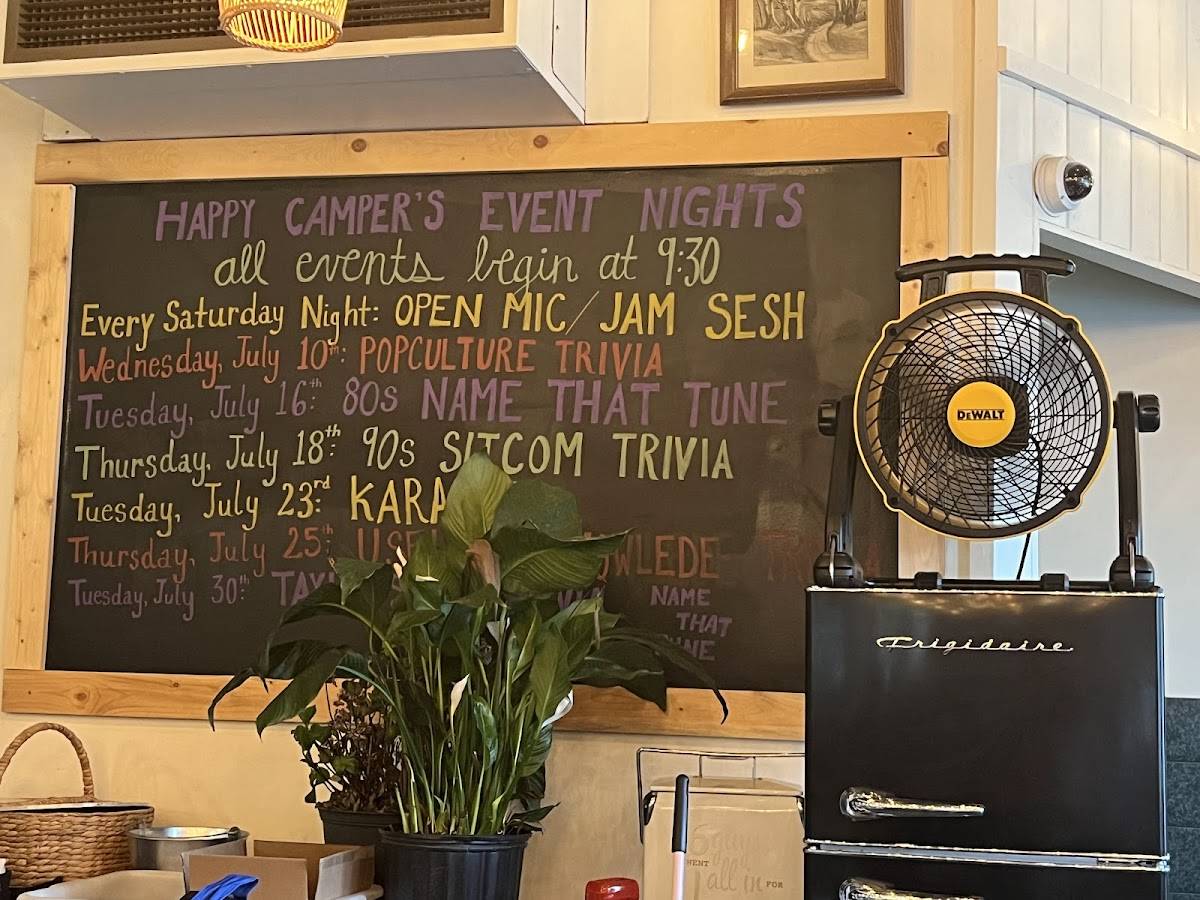 HAPPY CAMPER'S EVENT NIGHTS
all events begin at 9:30
Every Saturday Night: OPEN MIC/JAM SESH
Wednesday, July 10th: POPCULTURE TRIVIA
Tuesday, July 16th: 80s NAME THAT TUNE
Thursday, July 18th: 90s SITCOM TRIVIA
Tuesday, July 23rd: KARA
Thursday, July 25th: USE WLEDE TR
Tuesday, July 30th: TAY NAME
THAT
NE
DEWALT
Frigidaire
all in FOR